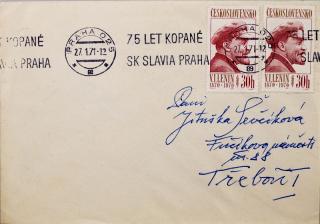 75 LET KOPANÉ
SLAVIA PRAHA
PRAHA 025
27.1.71-12
75 LET KOPANÉ
SK SLAVIA PRAHA
ČESKOSLOVENSKO
V.I.LENIN
1870-1970
30h
ČESKOSLOVENSKO
V.I.LENIN
1870-1970
30h
Paní
Jitřiška Ševčíková
Fučíkovo náměstí
Třeboň I